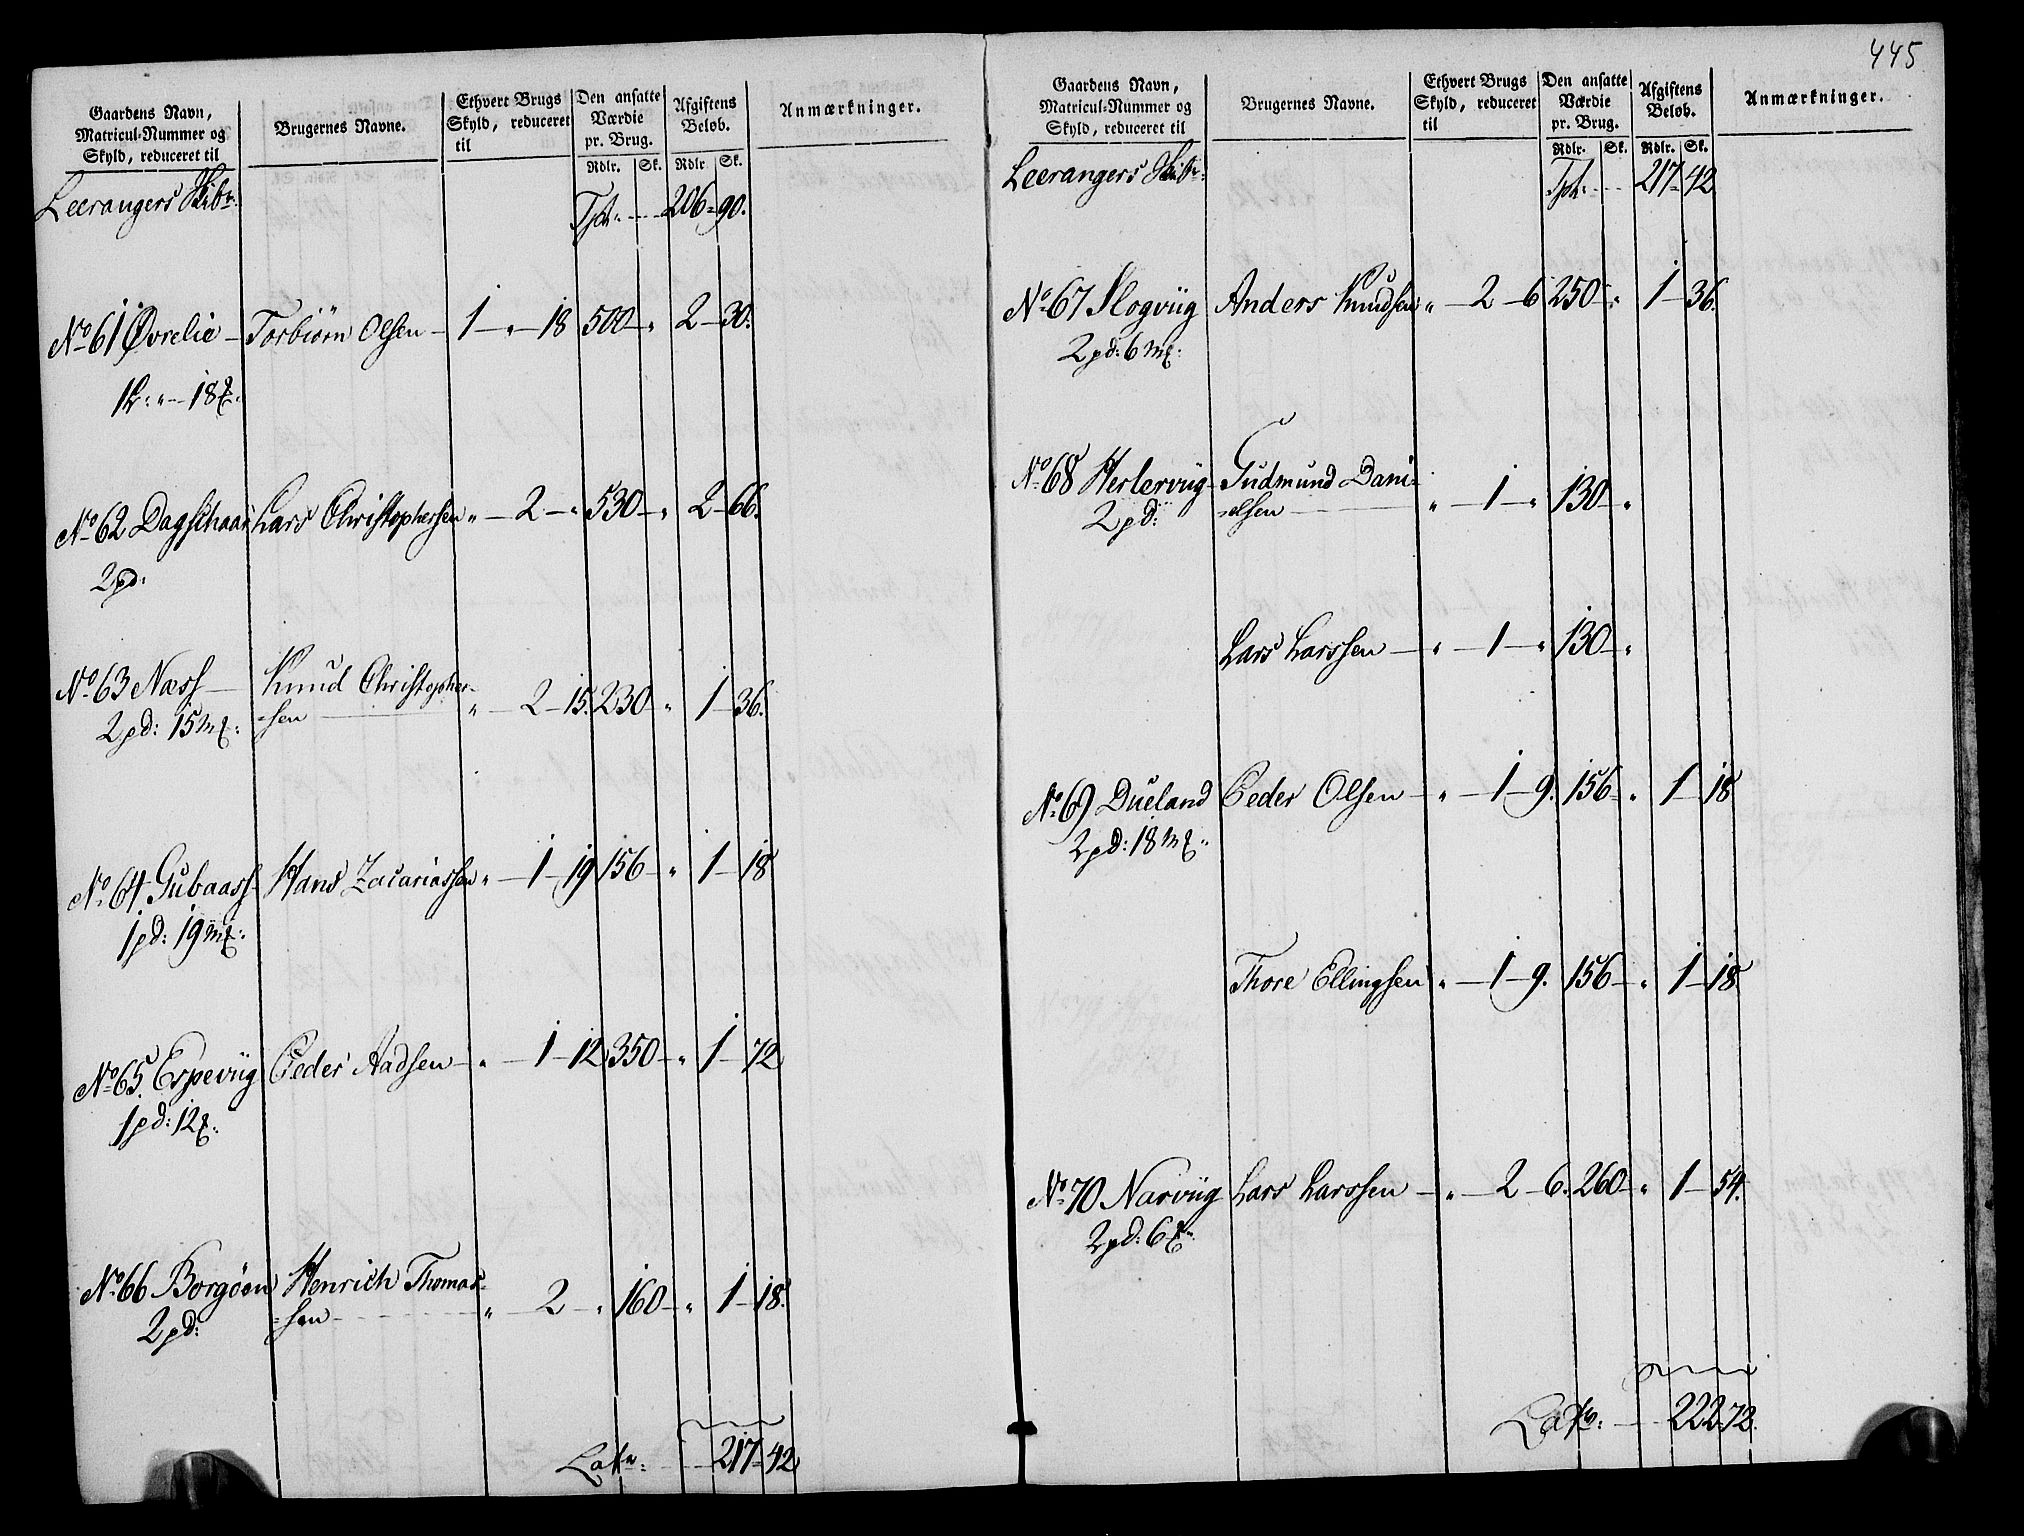 Gaardens Navn,
Matricul-Nummer og
Skyld, reduceret til
Brugernes Navne.
Ethvert Brugs
Skyld, reduceret
til
Den ansatte
Værdie
pr. Brug.
Rdlr. Sk.
Afgiftens
Beløb.
Rdlr Sk.
Anmærkninger.
Leerangers Skibr:
Tpt: 206 90.
No 61 Øvrelie Torbiörn Olsen 1 " 18 500 " 2 30.
" 18
No 62 Dagschaar Lars Christophersen " 2 " 530 " 2 66.
2 pd:
No 63 Næss Knud Christopher=
=sen " 2 15. 230 " 1 36.
2 pd: 15 mk:
No 64 Gubaass Hans Zacariassen " 1 19 156 " 1 18
1 pd: 19 mk:
No 65. Espeviig Peder Aadsen " 1 12 350 " 1 72
1 pd: 12
No 66 Borgöen Henrich Thomas=
=sen " 2 " 160 " 1 18.
2 pd:
Latr: 217 42
445
Gaardens Navn,
Matricul-Nummer og
Skyld, reduceret til
Brugernes Navne.
Ethvert Brugs
Skyld, reduceret
til
Den ansatte
Værdie
pr. Brug.
Rdlr. Sk.
Afgiftens
Beløb.
Rdlr. Sk.
Anmærkninger.
Leerangers Skibr:
Tpt: 217 42
No 67 Slogviig Anders Knudsen " 2 6 250 " 1 36.
2 pd: 6 mk:
No 68 Herlerviig Gudmund Dani=
=elsen " 1 " 130 "
2 pd:
Lars Larssen " 1 " 130 "
No 69 Dueland Peder Olsen " 1 9. 156 " 1 18
2 pd: 18 mk:
Thore Ellingsen " 1 9. 156 " 1 18
No 70 Narviig Lars Larssen " 2 6. 260 " 1 54.
2 pd: 6
Latr: 222 72.